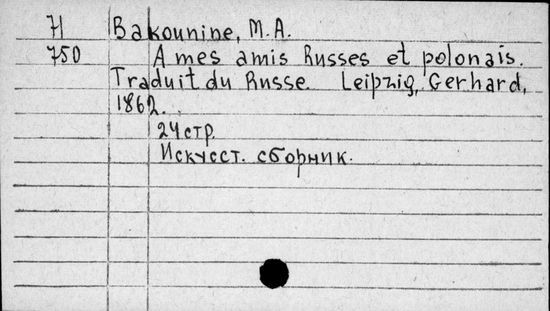 71 Bakounine, M.A.
750 A mes amis Russes et polonais.
Traduit du Russe. Leipzig, Gerhard,
1862.
24 стр.
Искусст. сборник.